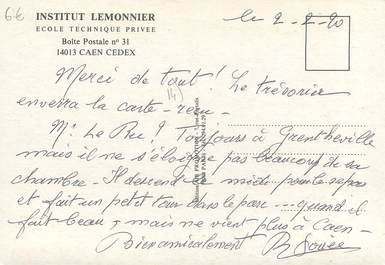 6€
INSTITUT LEMONNIER
ECOLE TECHNIQUE PRIVEE
Boîte Postale nº 31
14013 CAEN CEDEX
le 2-2-90
Merci de tout! Le trésorier
enverra la carte-reçu
(14)
Mr Le Rue! Toujours à Grentheville
mais il ne s'éloigne pas beaucoup de sa
chambre - Il descend le midi pour le repas
et fait un petit tour dans le parc --- quand il
fait beau, mais ne vient plus à Caen-
Bien amicalement